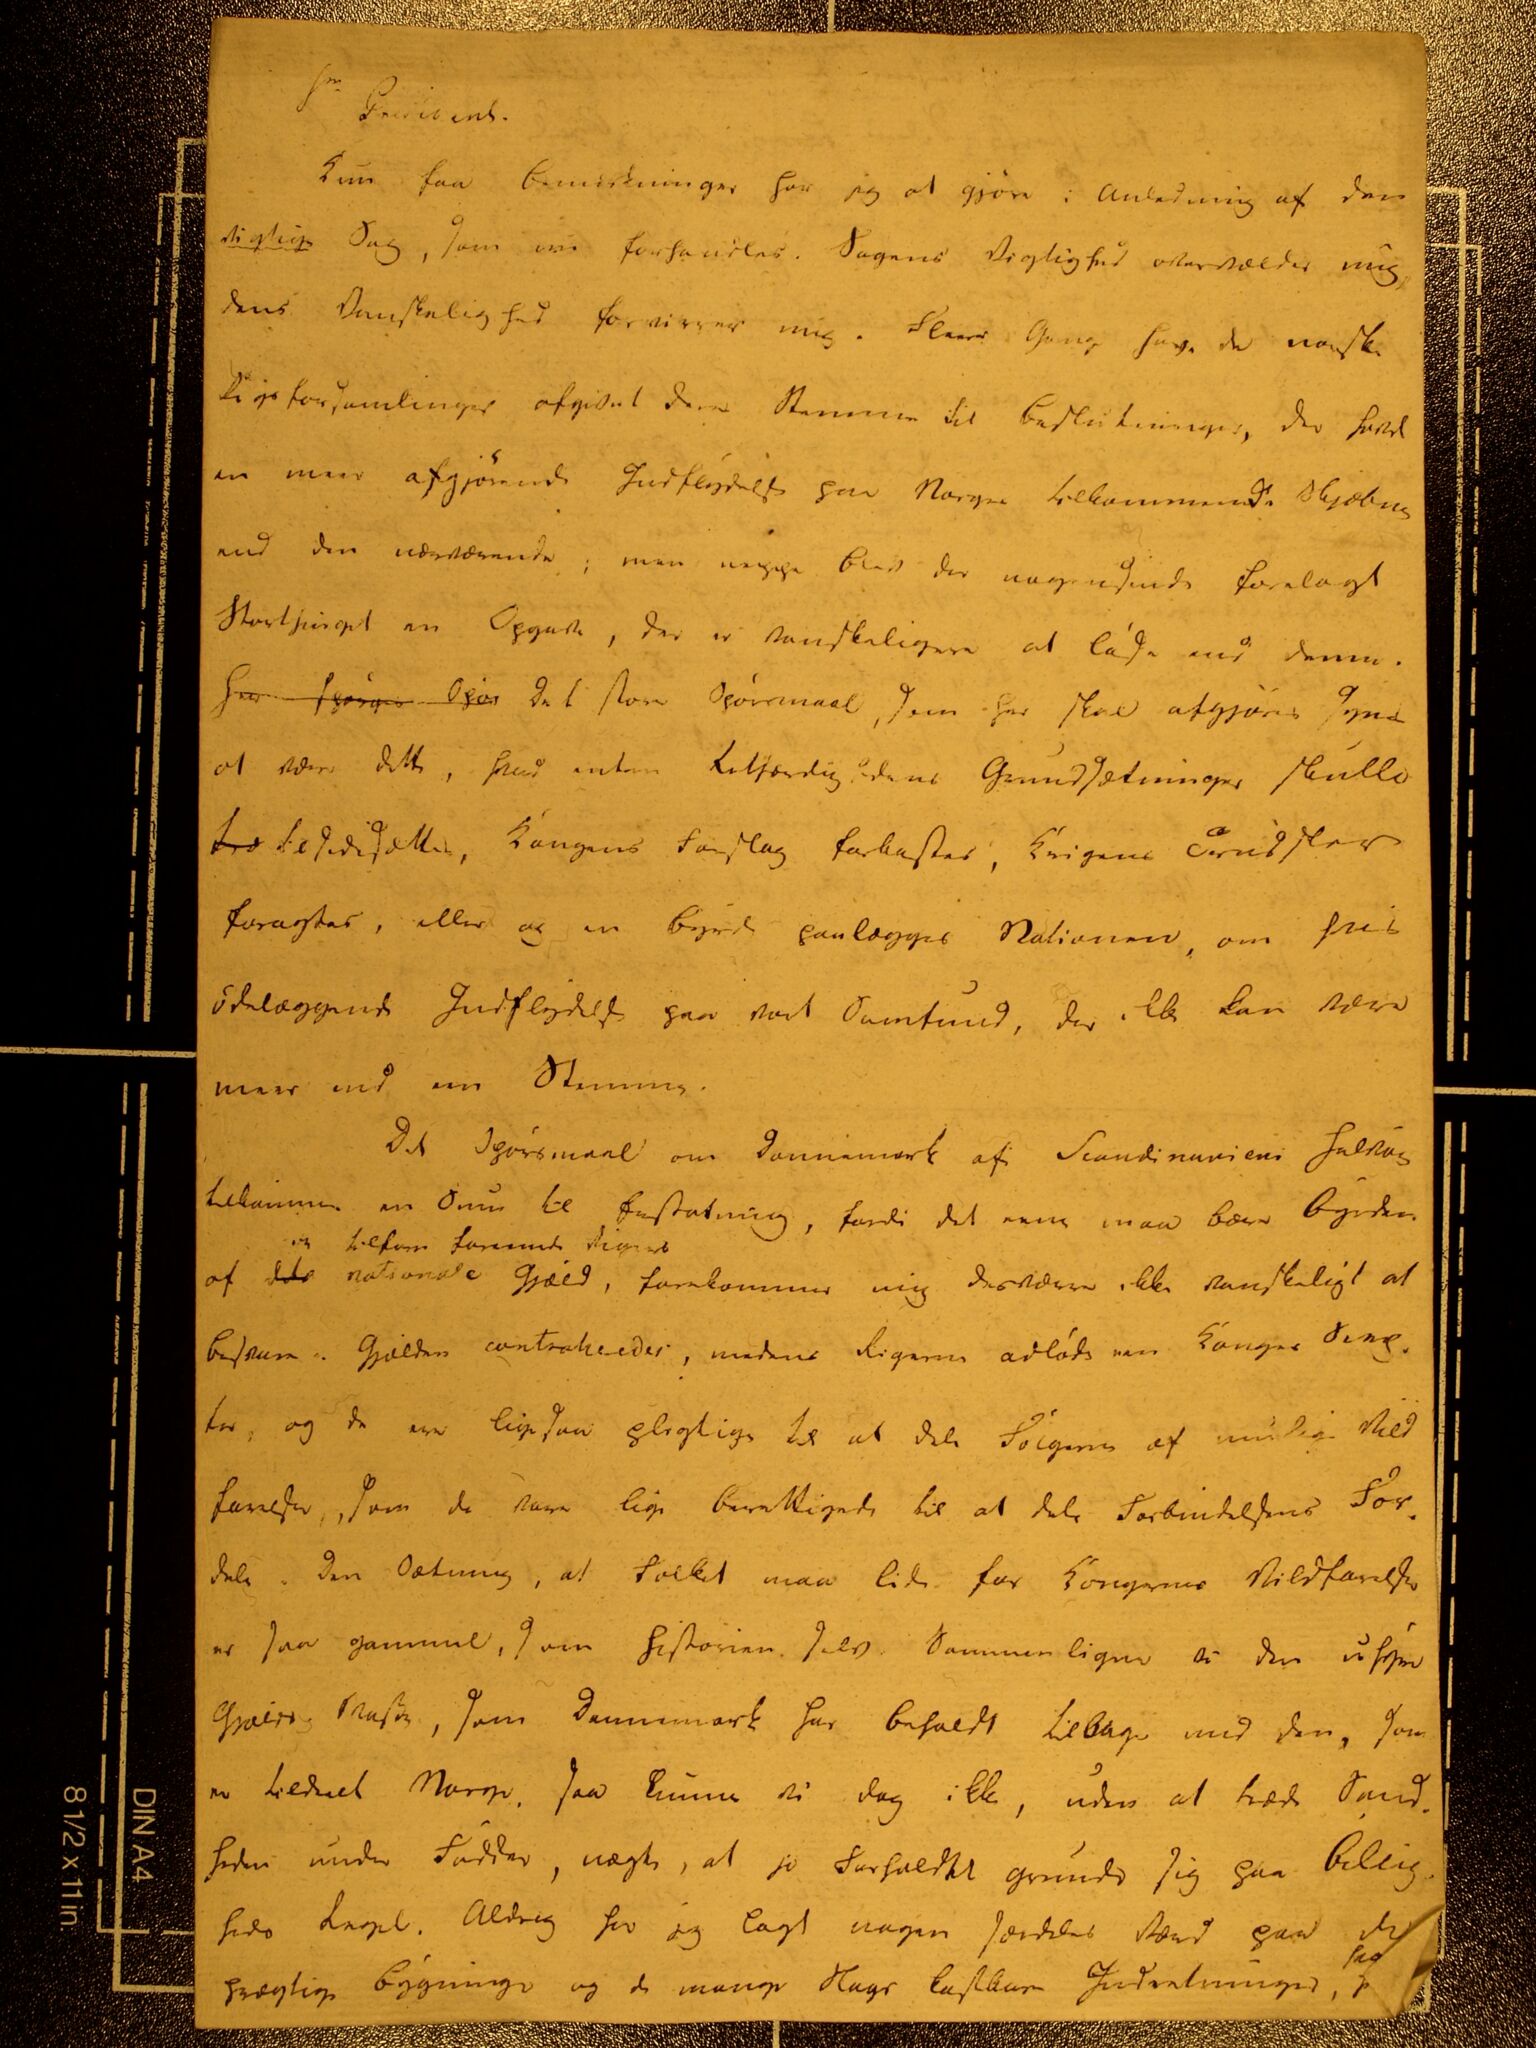 Hr
Præsident.
Kun faa Bemærkninger har jeg at gjöre i Anledning af den
vigtige Sag, som nu forhandles. Sagens Vigtighed overvælder mig,
dens Vanskelighed forvirrer mig. Fleere Gange have de norske
Rigsforsamlinger afgivet deres Stemme til Beslutninger, der havde
en meer afgjörende Indflydelse paa Norges tilkommende Skjæbne
end den nærværende; men neppe blev der nogensinde forelagt
Storthinget en Opgave, der er vanskeligere at löse end denne.
Her spörges Spör Det store Spörsmaal, som her skal afgjöres synes
at være dette, hvad enten Retfærdighedens Grundsætninger skulle
træ tilsidesættes, Kongens Forslag forkastes, Krigens Rædsler
foragtes, eller og en Byrde paalægges Nationen, om hvis
ödelæggende Indflydelse paa vort Samfund, der ikke kan være
meer end een Stemme.
Det Spörsmaal om Dannemark af Scandinaviens Halvöe
tilkommer en Sum til Erstatning, fordi det ene maa bære Byrden
en tilforn forenede Rigers
af det nationale Gjæld, forekommer mig desværre ikke vanskeligt at
besvare. Gjælden contraheredes, medens Rigerne adlöde een Konges Scep-
ter, og de ere ligesaa pligtige til at dele Fölgerne af mulige Vild
farelser, som de vare lige berettigede til at dele Forbindelsens For-
dele. Den Sætning, at Folket maa lide for Kongernes Vildfarelser
er saa gammel, som Historien selv. Sammenligne vi den uhyre
Gjælds Masse, som Dannemark har beholdt tilbage med den, som
er tildeelt Norge, saa kunne vi dog ikke, uden at træde Sand-
heden under Födder, nægte, at jo Forholdet grunder sig paa Billig-
heds Regel. Aldrig har jeg lagt nogen særdeles Værd paa de
prægtige Bygninger og de mange Slags kostbare Indretninger,